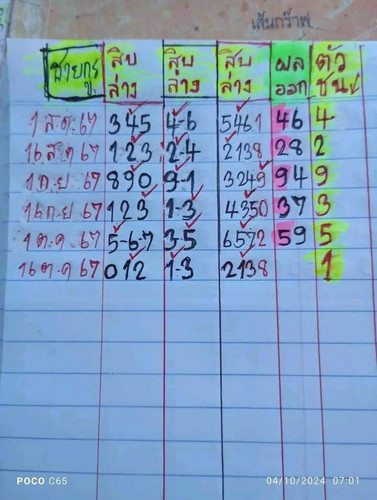 เส้นกราฟ
สายกรู สิบล่าง สิบล่าง สิบล่าง ผลออก ตัวชน
1 ส.ค. 67 345 4-6 5461 46 4
16 ส.ค 67 123 2-4 2138 28 2
1 ก.ย. 67 890 9-1 3249 94 9
16 ก.ย 67 123 1-3 4350 37 3
1 ต.ค. 67 5-6-7 3-5 6572 59 5
16 ต.ค 67 012 1-3 2138 1
POCO C65 04/10/2024 07:01